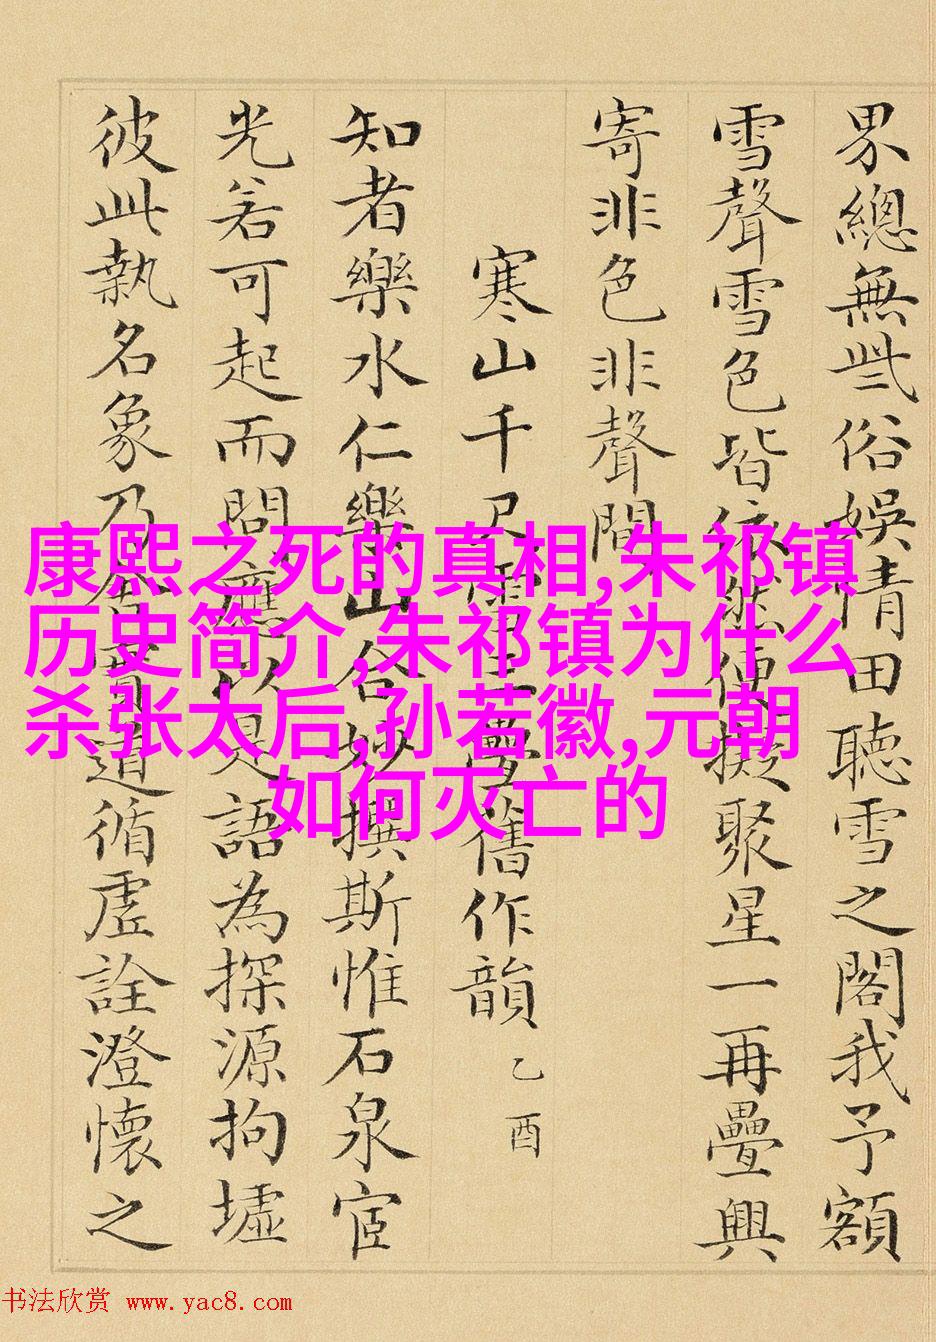 界總無些俗娛情田聽雪之閣我予額
雪聲雪色皆依然便擬聚星一再疊興
寄非色非聲間
寒山千尺雪三疊舊作韻 乙酉
知者樂水仁樂山合妙撰斯惟石泉宦
光若可起而問應以是語為探源拘墟
彼此執名象乃道循虛詮澄懷之
康熙之死的真相,朱祁镇
历史简介,朱祁镇为什么
杀张太后,孙若徽,元朝
如何灭亡的
书法欣赏 www.yac8.com